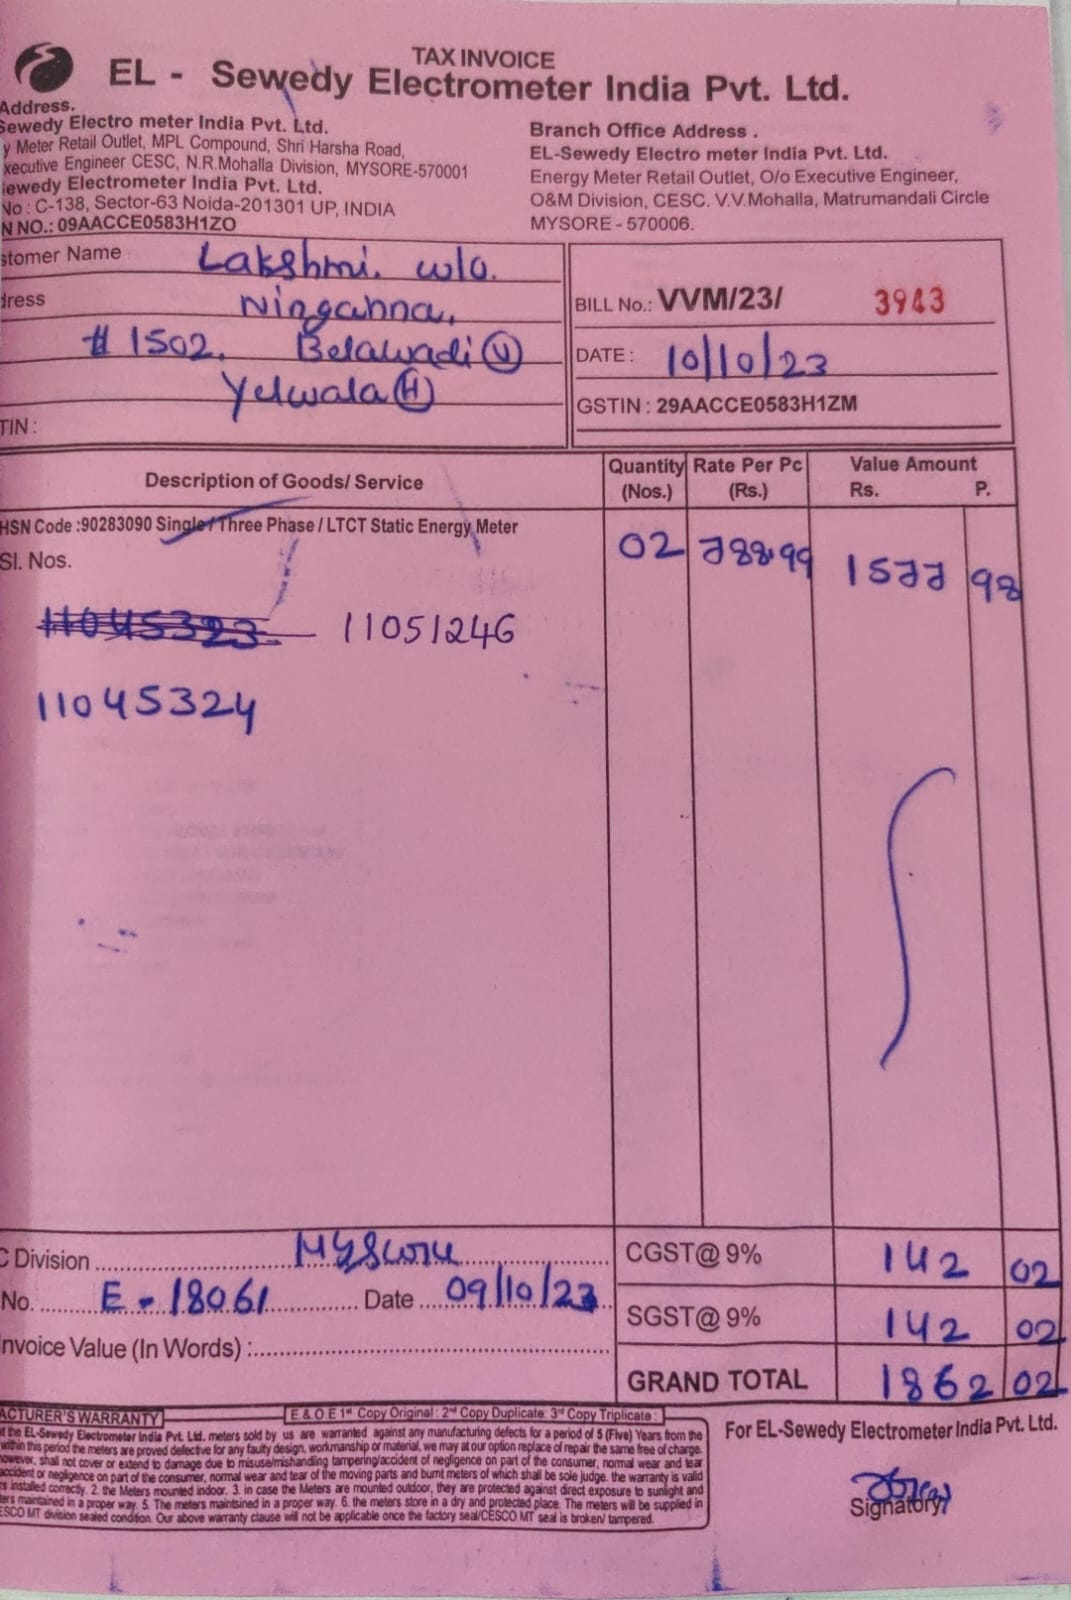 TAX INVOICE
EL - Sewedy Electrometer India Pvt. Ltd.
Address.
Sewedy Electro meter India Pvt. Ltd.
y Meter Retail Outlet, MPL Compound, Shri Harsha Road,
xecutive Engineer CESC, N.R.Mohalla Division, MYSORE-570001
ewedy Electrometer India Pvt. Ltd.
No : C-138, Sector-63 Noida-201301 UP, INDIA
N NO.: 09AACCE0583H1ZO
Branch Office Address .
EL-Sewedy Electro meter India Pvt. Ltd.
Energy Meter Retail Outlet, O/o Executive Engineer,
O&M Division, CESC. V.V.Mohalla, Matrumandali Circle
MYSORE - 570006.
stomer Name Lakshmi. w/o.
dress Ninganna,
# 1502, Belawadi (V)
Yelwala (H)
TIN :
BILL No.: VVM/23/ 3943
DATE : 10/10/23
GSTIN : 29AACCE0583H1ZM
Description of Goods/ Service Quantity (Nos.) Rate Per Pc (Rs.) Value Amount Rs. P.
HSN Code :90283090 Single / Three Phase / LTCT Static Energy Meter 02 788.99 1577 98
Sl. Nos.
11045323 11051246
11045324
C Division Mysore CGST@ 9% 142 02
No. E - 18061 Date 09/10/23 SGST@ 9% 142 02
nvoice Value (In Words) :
GRAND TOTAL 1862 02
ACTURER'S WARRANTY E & O.E 1st Copy Original : 2nd Copy Duplicate: 3rd Copy Triplicate :
t the EL-Sewedy Electrometer India Pvt. Ltd. meters sold by us are warranted against any manufacturing defects for a period of 5 (Five) Years from the
within this period the meters are proved defective for any faulty design, workmanship or material, we may at our option replace of repair the same free of charge.
however, shall not cover or extend to damage due to misuse/mishandling tampering/accident of negligence on part of the consumer, normal wear and tear
accident or negligence on part of the consumer, normal wear and tear of the moving parts and burnt meters of which shall be sole judge. the warranty is valid
rs installed correctly. 2. the Meters mounted indoor. 3. in case the Meters are mounted outdoor, they are protected against direct exposure to sunlight and
ters maintained in a proper way. 5. The meters maintsined in a proper way. 6. the meters store in a dry and protected place. The meters will be supplied in
ESCO MT division sealed condition. Our above warranty clause will not be applicable once the factory seal/CESCO MT seal is broken/ tampered.
For EL-Sewedy Electrometer India Pvt. Ltd.
Signatory